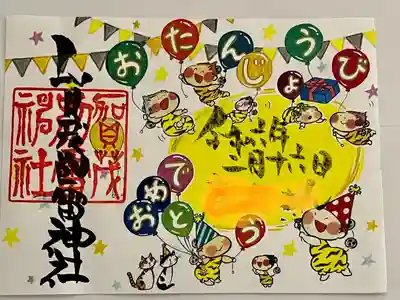 おたんじょうび
加茂
別雷
神社
別雷神社
令和六年
二月十六日
おめでとう